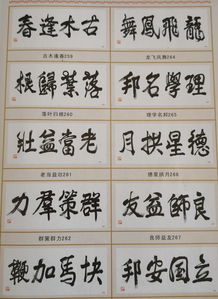 古木逢春
龍飛鳳舞
古木逢春259
龙飞凤舞264
落葉歸根
理學名邦
落叶归根260
理学名邦265
老當益壯
德星拱月
老当益壮261
德星拱月266
群策羣力
良師益友
群策群力262
良师益友267
快馬加鞭
立國安邦